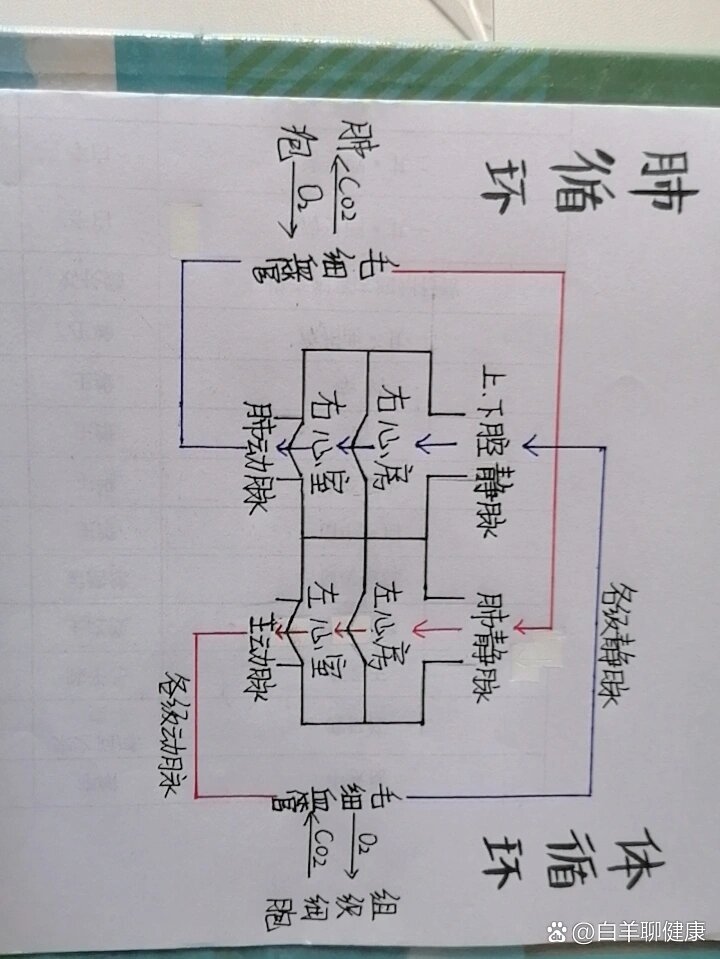 肺循环
体循环
各级静脉
上、下腔静脉
肺静脉
肺泡
CO2
O2
毛细血管
右心房
左心房
毛细血管
O2
CO2
组织细胞
右心室
左心室
肺动脉
主动脉
各级动脉
@白羊聊健康